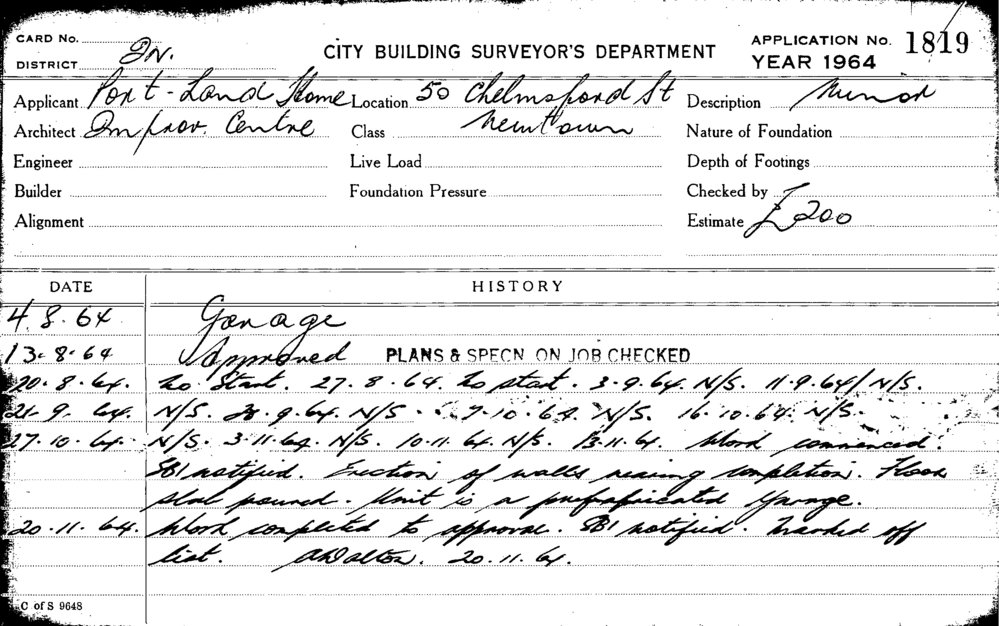 CARD No.
DISTRICT IN.
CITY BUILDING SURVEYOR'S DEPARTMENT
APPLICATION No. 1819
YEAR 1964
Applicant Port-Land Home Location 50 Chelmsford St Description Minor
Architect Improv. Centre Class Newtown Nature of Foundation
Engineer Live Load Depth of Footings
Builder Foundation Pressure Checked by
Alignment Estimate £200
DATE HISTORY
4.8.64 Garage
13.8.64 Approved PLANS & SPECN ON JOB CHECKED
20.8.64. No Start. 27.8.64. No start. 3.9.64. N/S. 11.9.64/ N/S.
21.9.64. N/S. 28.9.64. N/S. 7.10.64. N/S. 16.10.64. N/S.
27.10.64. N/S. 3.11.64. N/S. 10.11.64. N/S. 13.11.64. Work commenced.
SBI notified. Erection of walls nearing completion. Floor
slab poured. Unit is a prefabricated garage.
20.11.64. Work completed to approval. SBI notified. Marked off
list. ADalton. 20.11.64.
C of S 9648